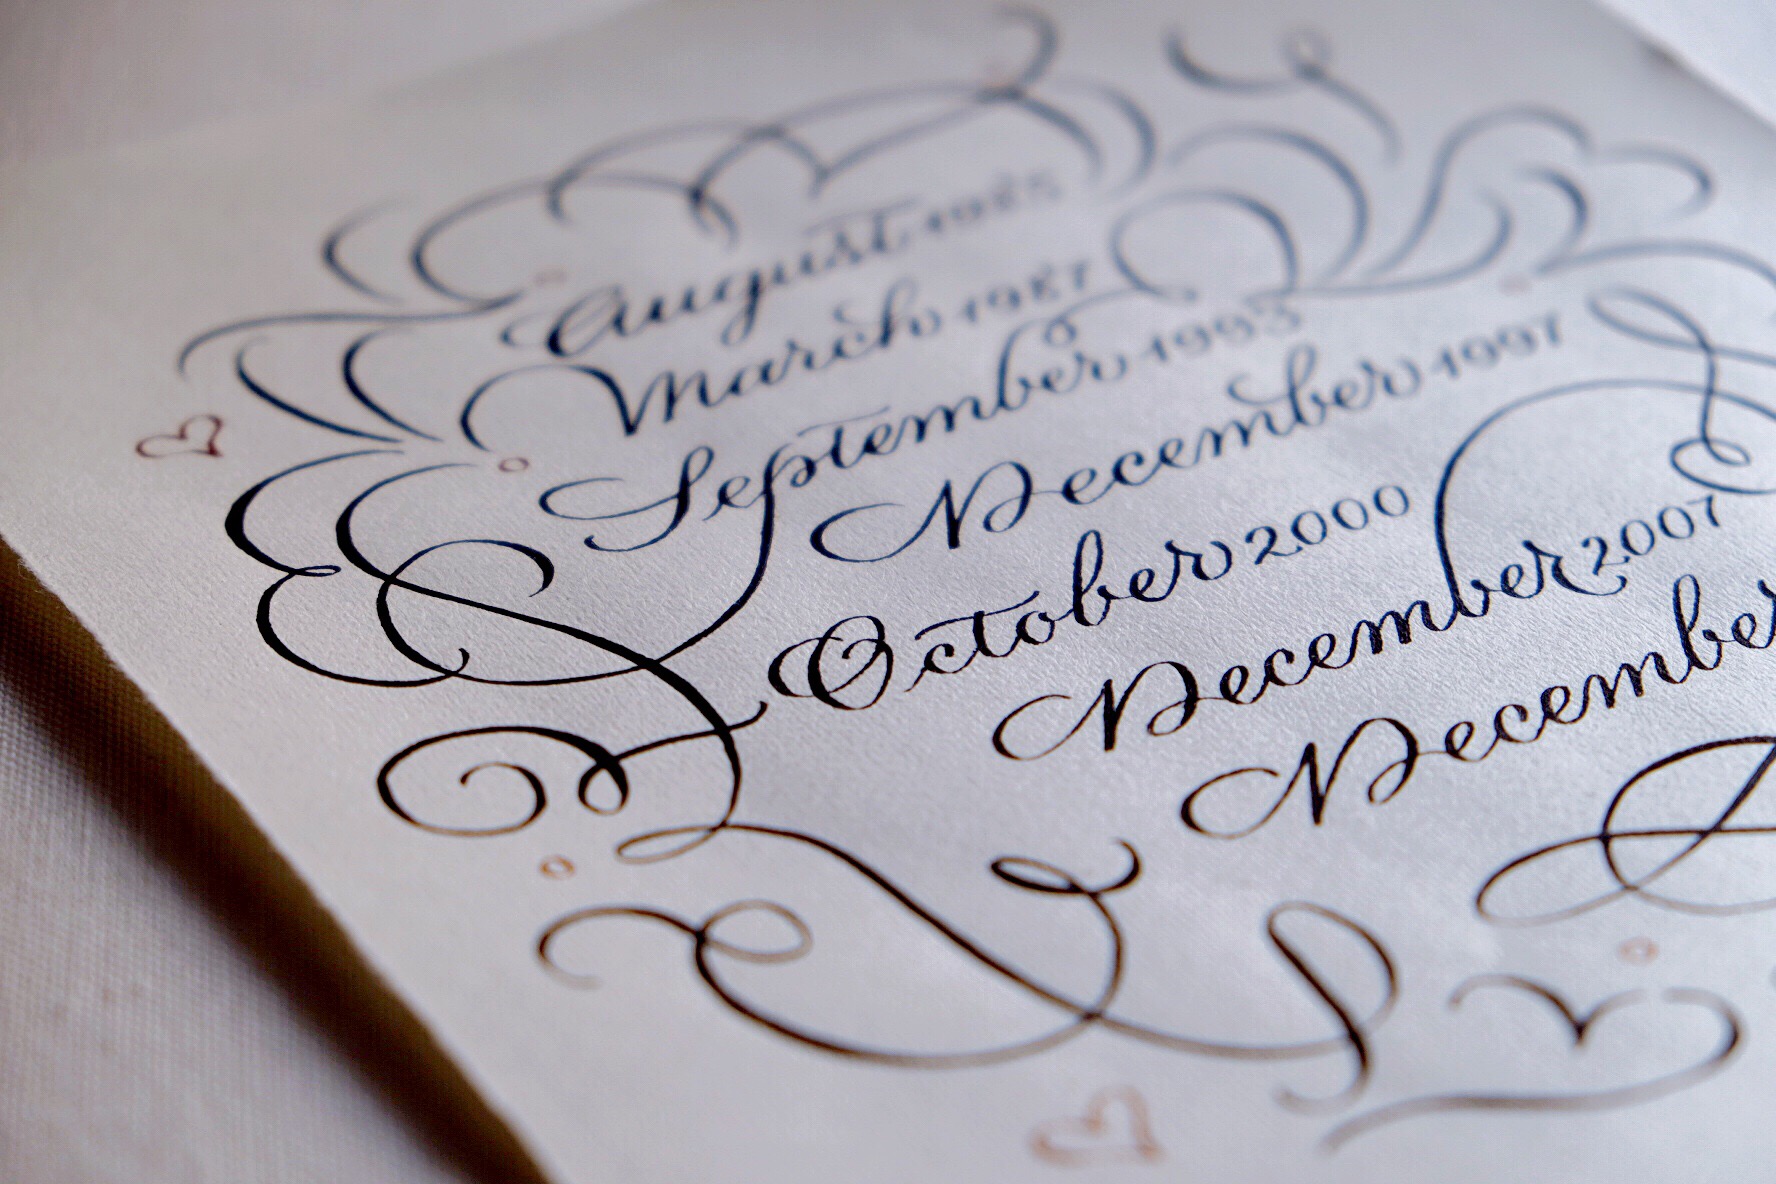 August 1985
March 1987
September 1993
December 1997
October 2000
December 2007
December